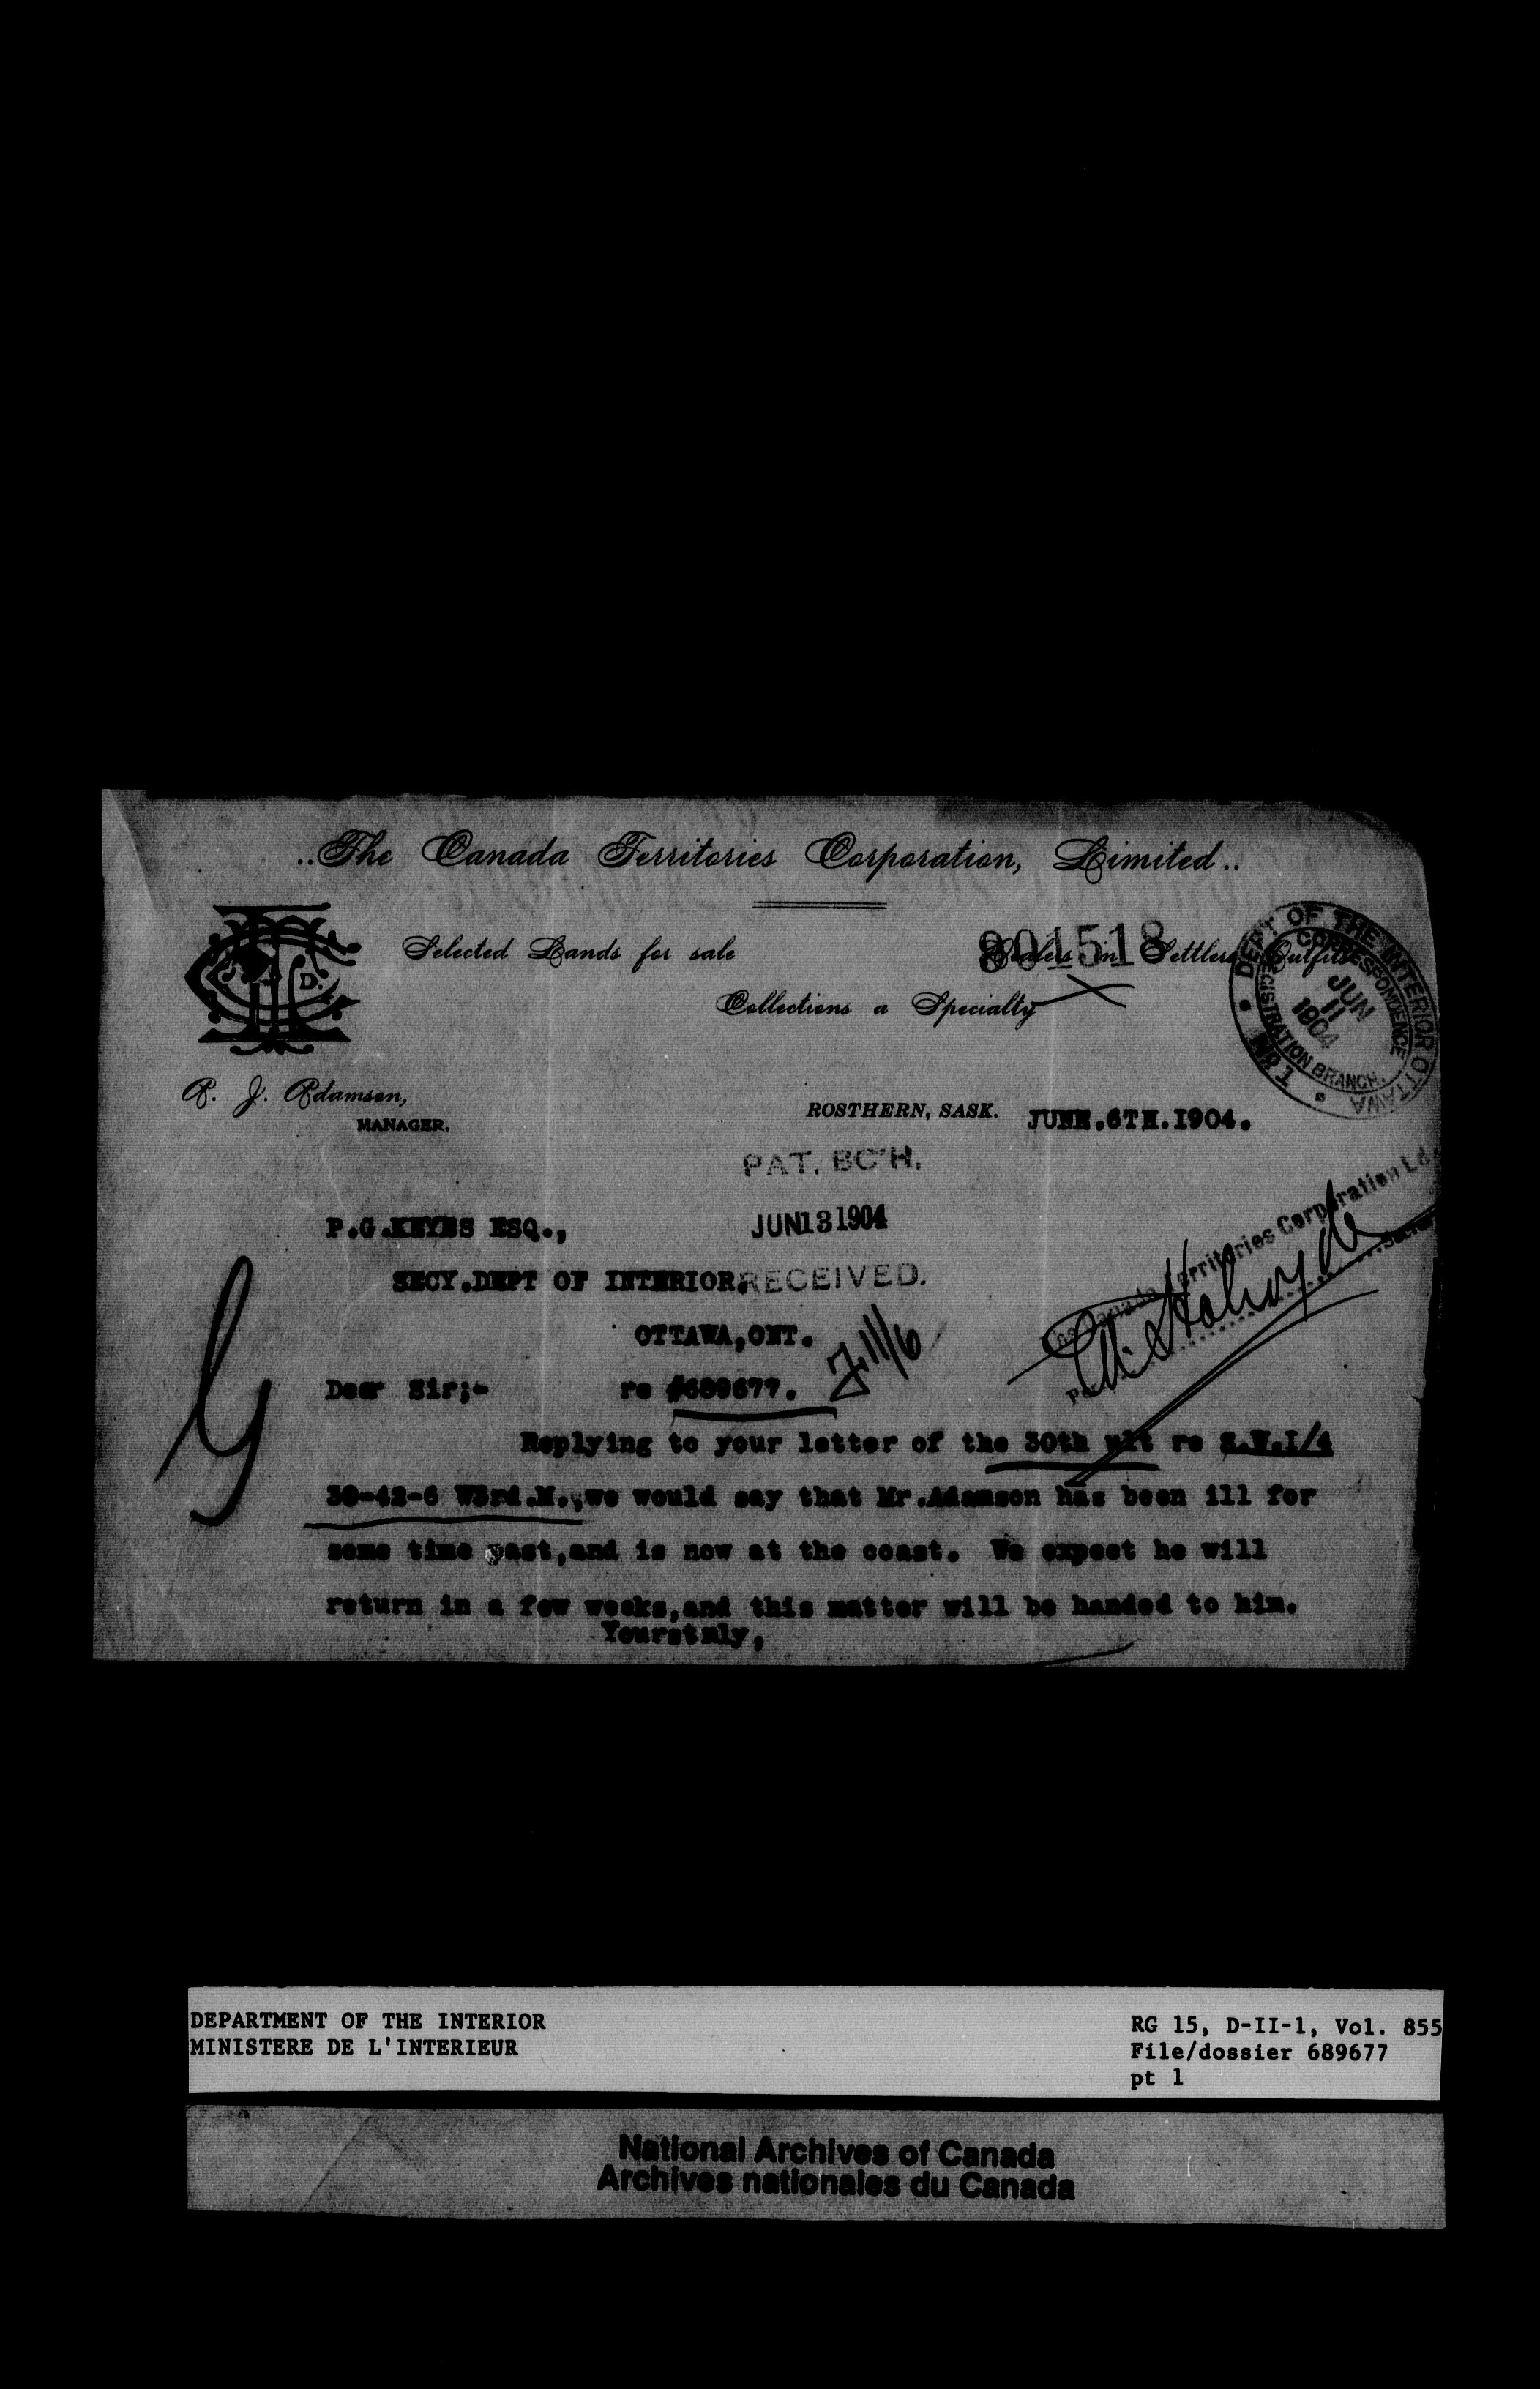 ..The Canada Territories Corporation, Limited..
Selected Lands for sale
Dealers in Settlers Outfits
801518
Collections a Specialty
D.
DEPT OF THE INTERIOR OTTAWA
CORRESPONDENCE REGISTRATION BRANCH.
JUN
11
1904
No 1
R. J. Adamson,
MANAGER.
ROSTHERN, SASK. JUNE.6TH.I904.
PAT. BC'H.
JUN 13 1904
RECEIVED.
P.G.KEYES ESQ.,
SECY.DEPT OF INTERIOR,
OTTAWA,ONT.
The Canada Territories Corporation Ld.
Per
Dear Sir;- re #689677.
Replying to your letter of the 30th ult re S.W.I/4
30-42-6 W3rd.M.,we would say that Mr.Adamson has been ill for
some time past,and is now at the coast. We expect he will
return in a few weeks,and this matter will be handed to him.
Yourstruly,
DEPARTMENT OF THE INTERIOR
MINISTERE DE L'INTERIEUR
RG 15, D-II-1, Vol. 855
File/dossier 689677
pt 1
National Archives of Canada
Archives nationales du Canada